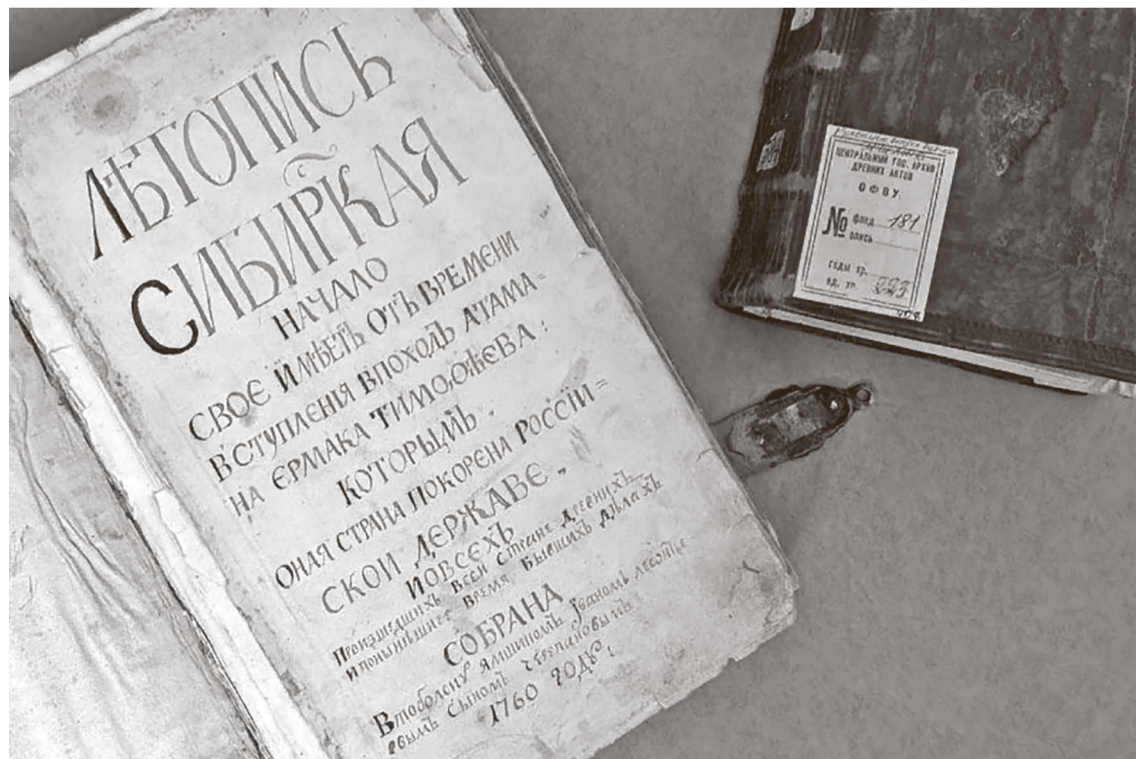 ЛѢТОПИСЬ
СИБИРКАЯ
НАЧАЛО
СВОЄ ИМѢЕТЪ ОТЪ ВРЕМЕНИ
ВСТУПЛЕНІЯ ВПОХОДЪ АТАМА-
НА ЄРМАКА ТИМОѲѢЕВА:
КОТОРЫМЪ.
ОНАЯ СТРАНА ПОКОРЕНА РОССІИ=
СКОИ ДЕРЖАВЕ.
ИОВСЕХЪ
Произшедшихъ Всеи Стране древнихъ
и понынѣшнее Время Бывшихъ дѣлахъ
СОБРАНА
Втоболску Ямшикомъ Іваномъ леонтье
вымъ Сыномъ Черепановымъ
1760 году:
ЦЕНТРАЛЬНЫЙ ГОС. АРХИВ
ДРЕВНИХ АКТОВ
ОФВУ.
№ фонд 181
опись
годы хр.
ед. хр.